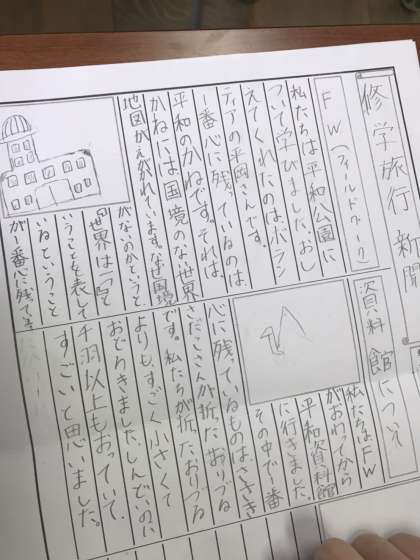 修学旅行新聞
FW（フィールドワーク）
私たちは平和公園に
ついて学びました。おし
えてくれたのは、ボラン
ティアの平岡さんです。
一番心に残っているのは、
平和のかねです。それは、
かねには国境のない世界
地図がえがかれています。なぜ国境
がないのかというと、
「世界は一つ」と
いうことを表して
いるということ
が一番心に残てま
資料館について
私たちはFW
がおわってから
平和資料館
に行きました。
その中で一番
心に残ているものはささき
さだこさんが折たおりづる
です。私たちが折たおりづる
よりもすごく小さくて
おどろきました。しんどいのに
千羽以上もおっていて、
すごいと思いました。